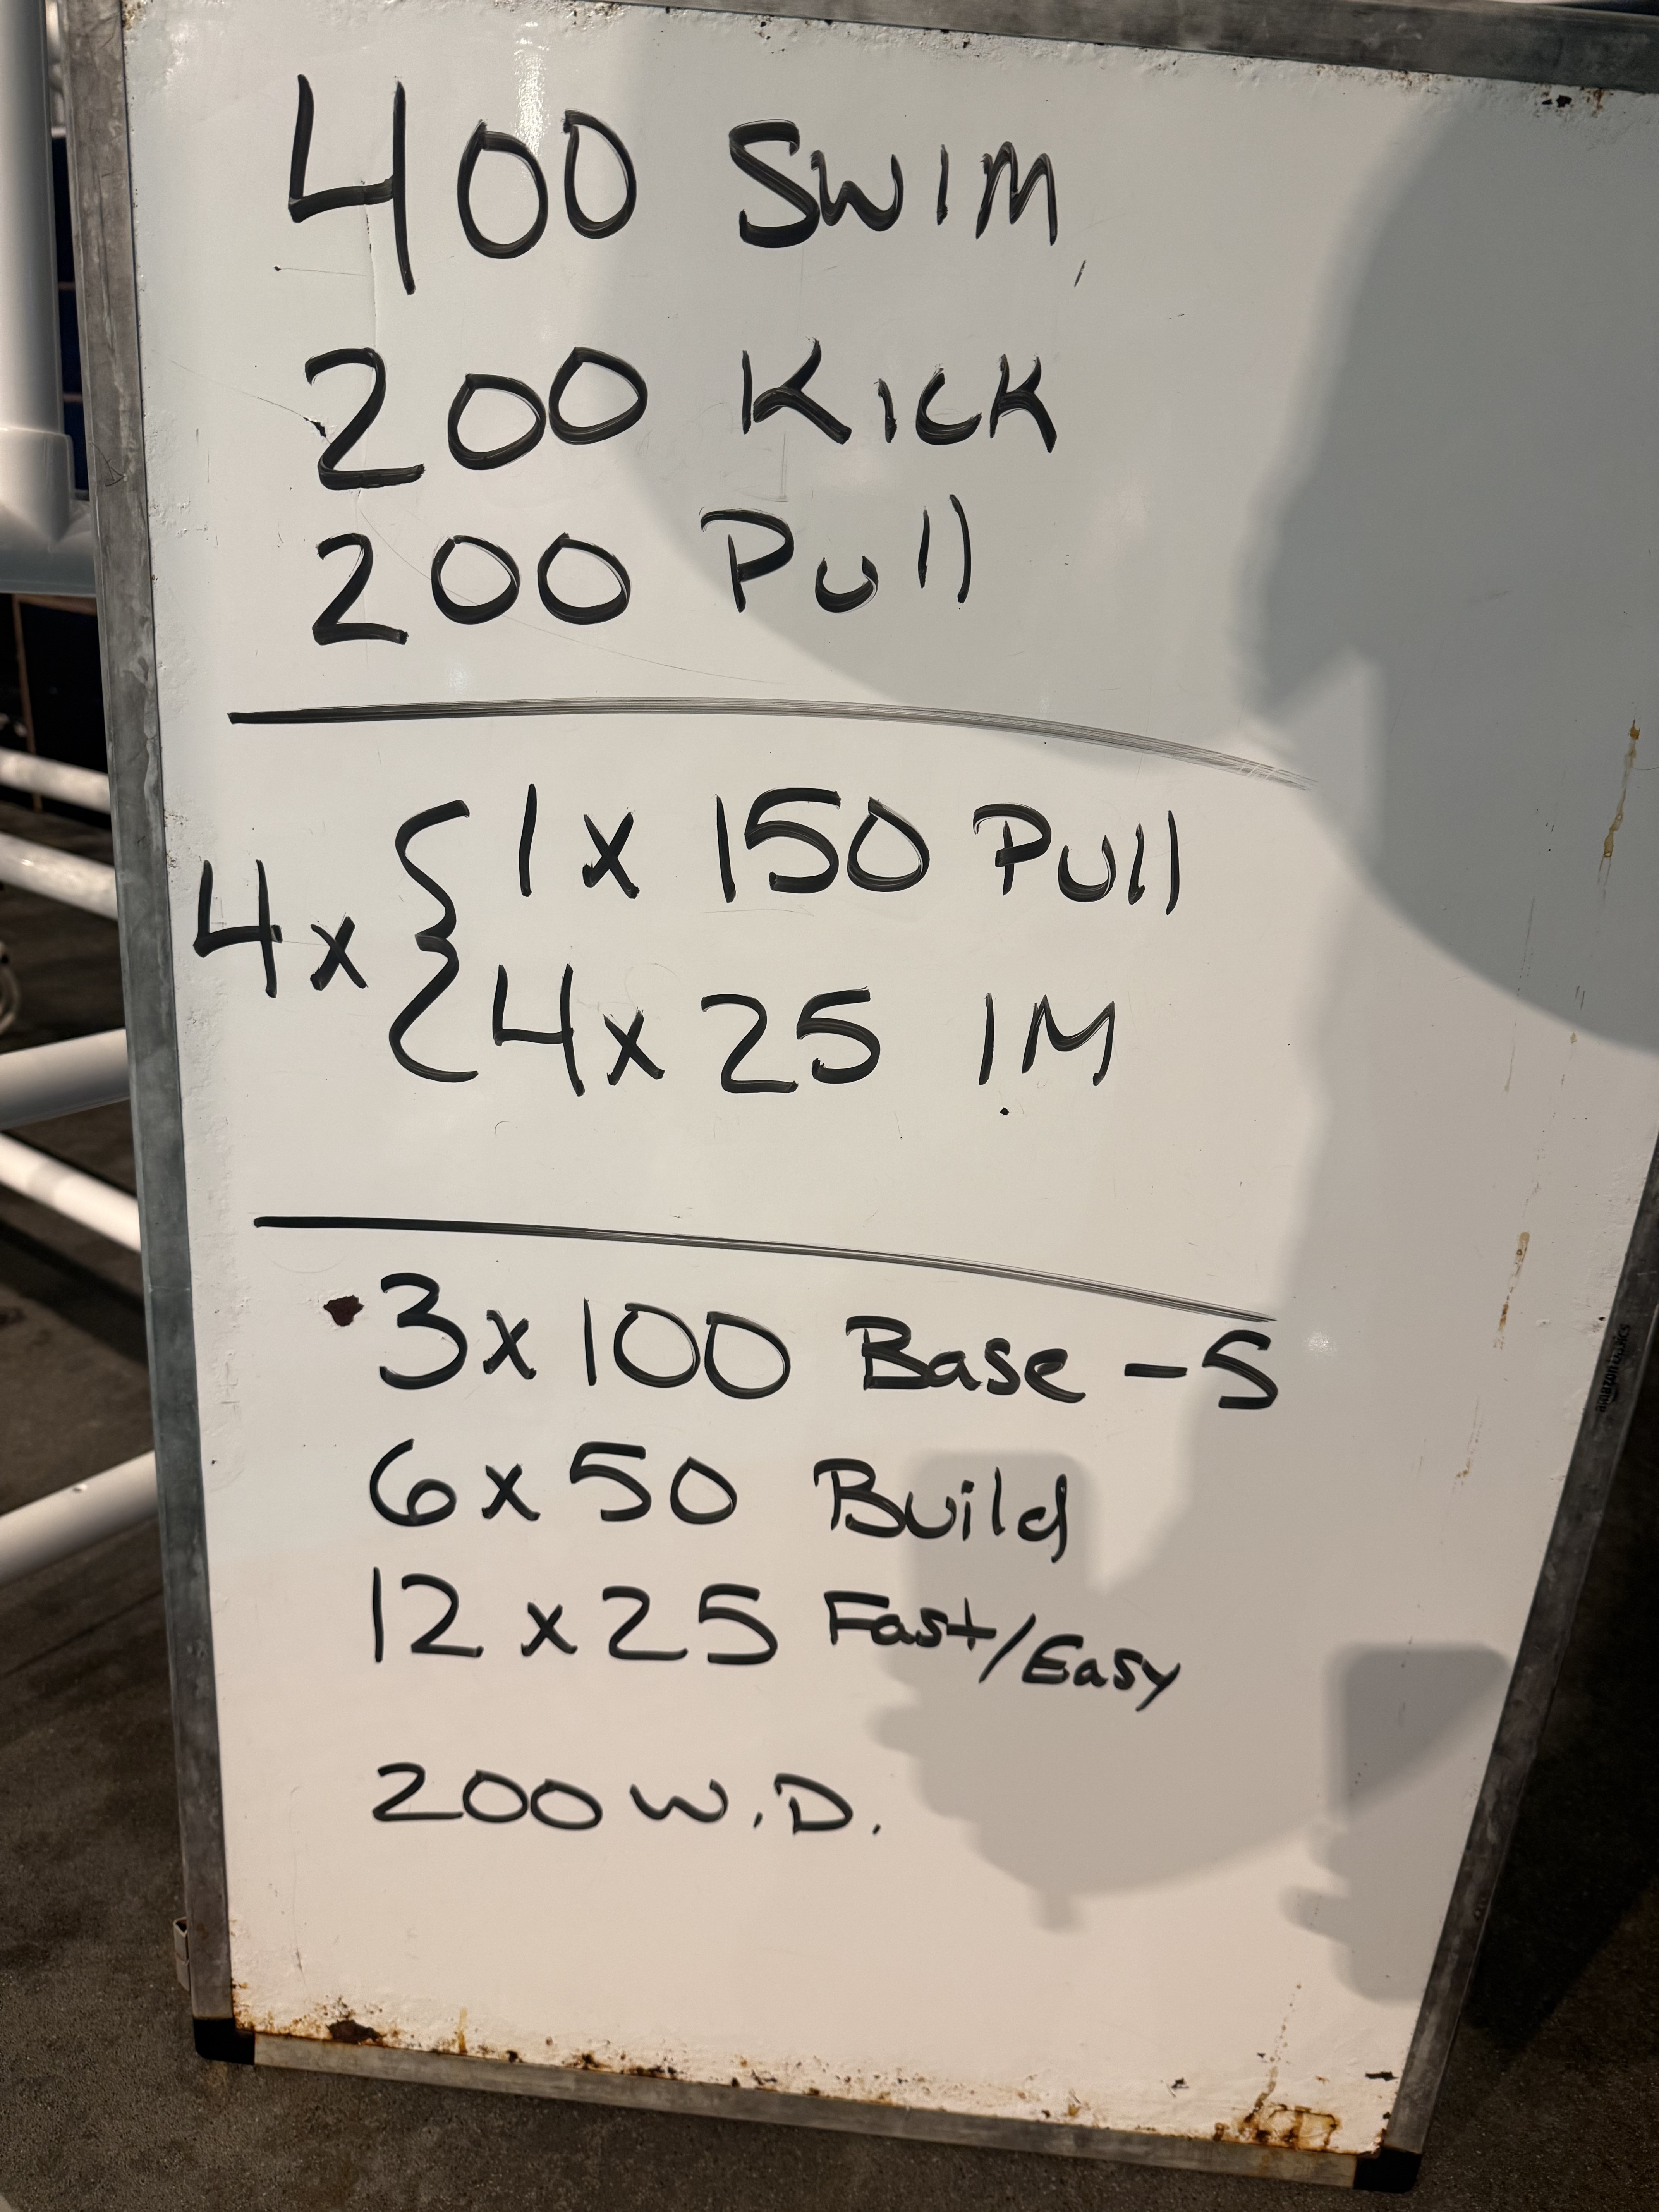 400 Swim
200 Kick
200 Pull
4x { 1x 150 Pull
4x 25 IM
3x 100 Base - 5
6x 50 Build
12 x 25 Fast/Easy
200 W.D.
amazon basics